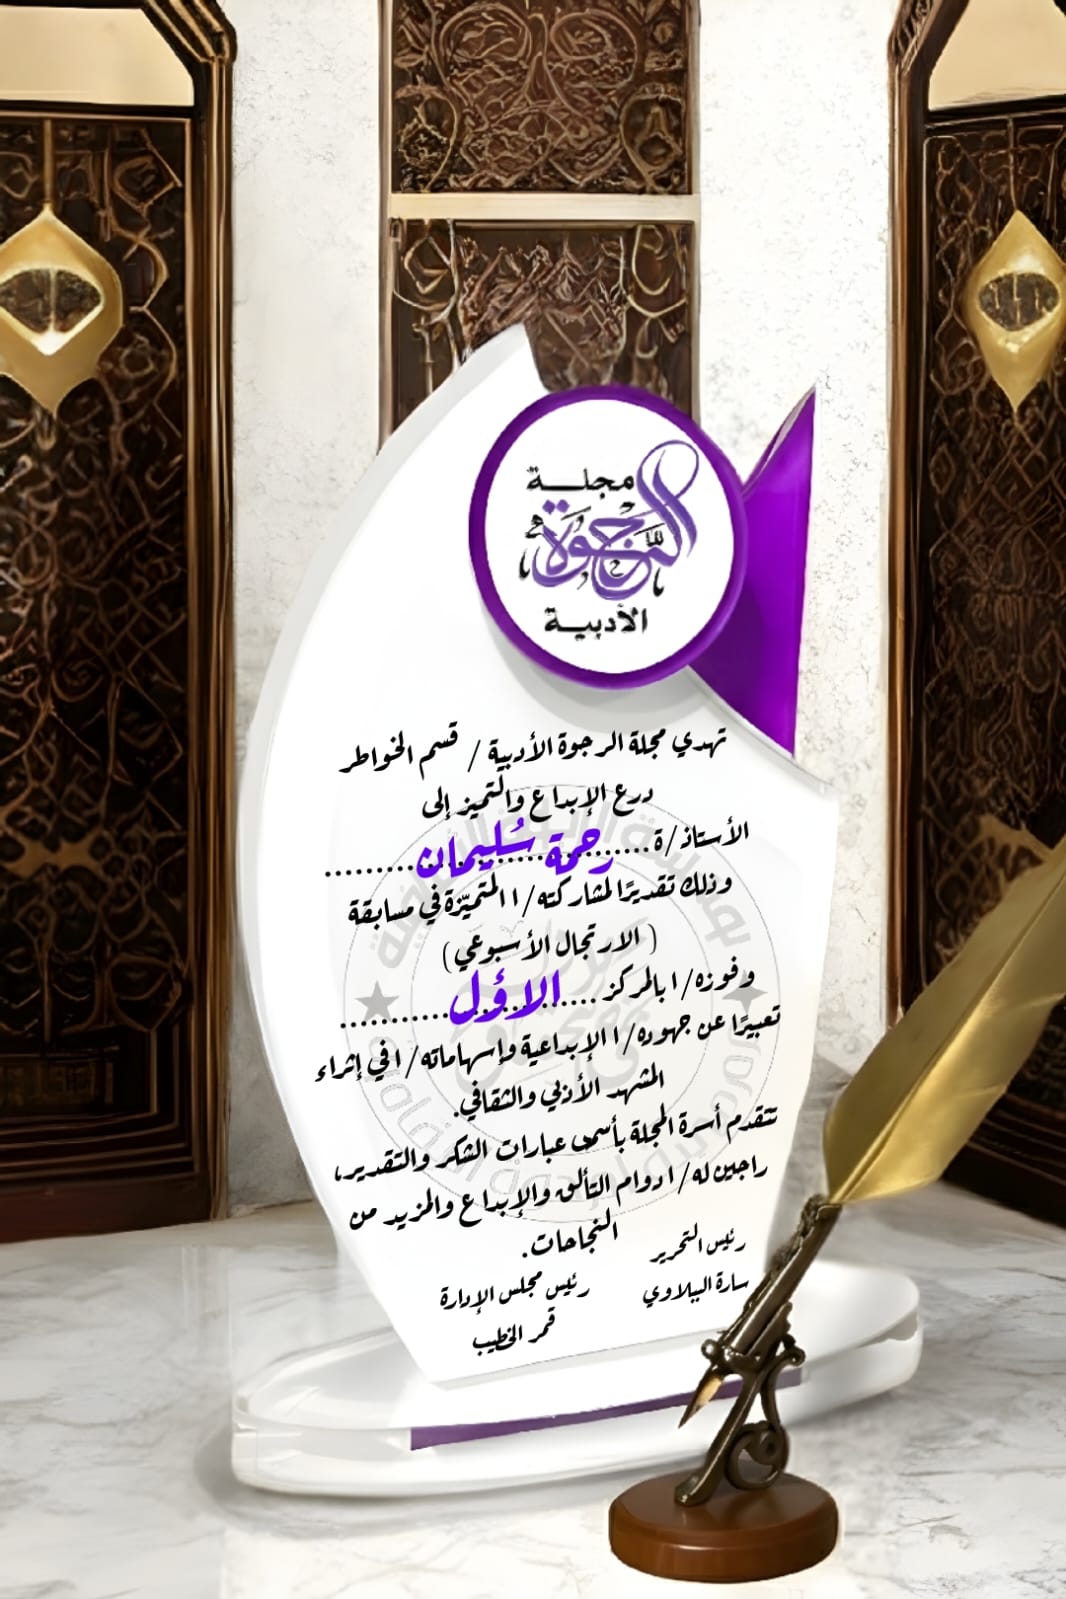 مجلة
الرجوة
الأدبية
تهدي مجلة الرجوة الأدبية / قسم الخواطر
درع الإبداع والتميز إلى
الأستاذ/ة...رحمة سُليمان...
وذلك تقديرًا لمشاركته/ا المتميّزة في مسابقة
( الارتجال الأسبوعي )
وفوزه/ا بالمركز ...الاؤل...
تعبيرًا عن جهوده/ا الإبداعية وإسهاماته/ا في إثراء
المشهد الأدبي والثقافي.
تتقدم أسرة المجلة بأسمى عبارات الشكر والتقدير،
راجين له/ا دوام التألق والإبداع والمزيد من
النجاحات.
رئيس التحرير
سارة الببلاوي
رئيس مجلس الإدارة
قمر الخطيب